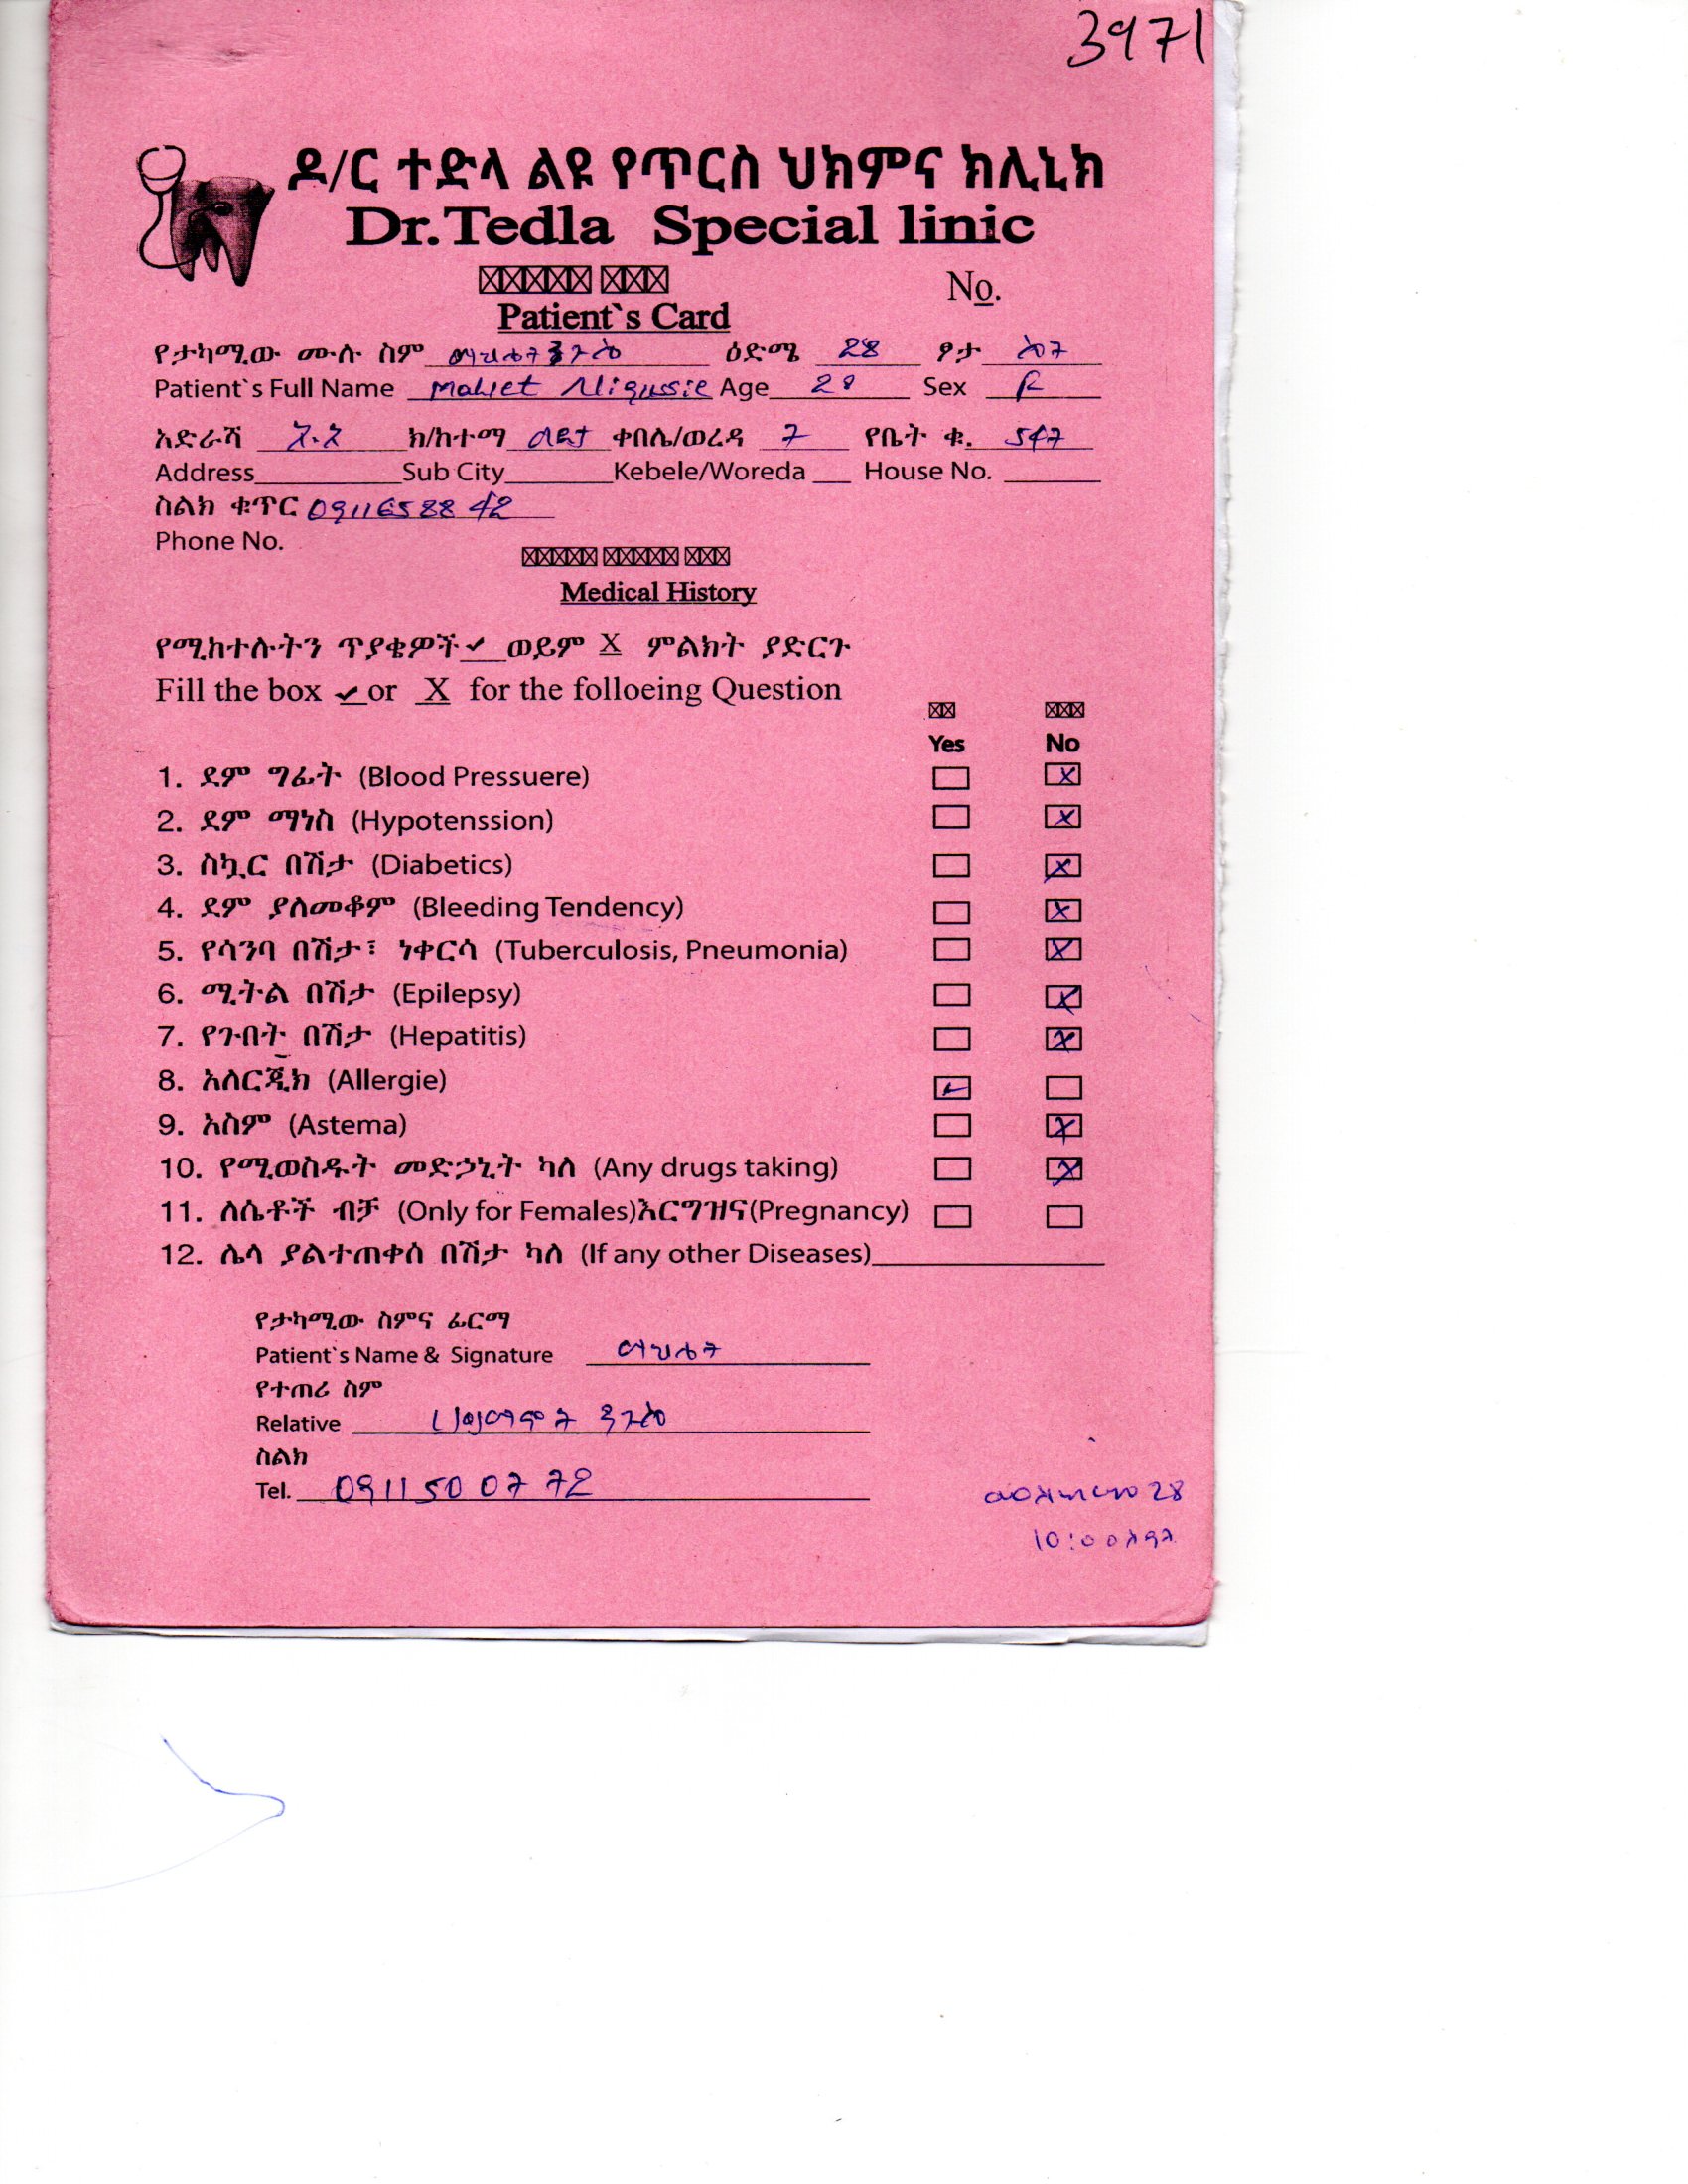 3971
ዶ/ር ተድላ ልዩ የጥርስ ህክምና ክሊኒክ
Dr.Tedla Special linic
No.
Patient`s Card
የታካሚው ሙሉ ስም ማህሌት ንጉሴ ዕድሜ 28 ፆታ ሴት
Patient`s Full Name Mahlet Nigussie Age 28 Sex F
አድራሻ አ.አ ክ/ከተማ ቀበሌ/ወረዳ 7 የቤት ቁ. 547
Address Sub City Kebele/Woreda House No.
ስልክ ቁጥር 0911658842
Phone No.
Medical History
የሚከተሉትን ጥያቄዎች ✓ ወይም X ምልክት ያድርጉ
Fill the box ✓ or X for the folloeing Question
Yes No
1. ደም ግፊት (Blood Pressuere) X
2. ደም ማነስ (Hypotenssion) X
3. ስኳር በሽታ (Diabetics) X
4. ደም ያለመቆም (Bleeding Tendency) X
5. የሳንባ በሽታ፣ ነቀርሳ (Tuberculosis, Pneumonia) X
6. ሚትል በሽታ (Epilepsy) X
7. የጉበት በሽታ (Hepatitis) X
8. አለርጂክ (Allergie) ✓
9. አስም (Astema) X
10. የሚወስዱት መድኃኒት ካለ (Any drugs taking) X
11. ለሴቶች ብቻ (Only for Females)እርግዝና(Pregnancy)
12. ሌላ ያልተጠቀሰ በሽታ ካለ (If any other Diseases)
የታካሚው ስምና ፊርማ
Patient`s Name & Signature ማህሌት
የተጠሪ ስም
Relative ንጉሴ
ስልክ
Tel. 0911 50 07 72
28
10:00